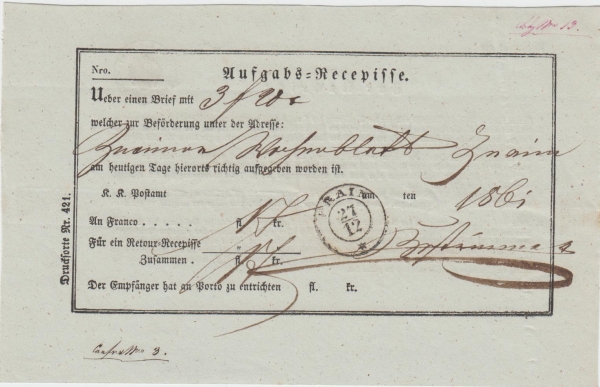 Nro.
Aufgabs-Recepisse.
Ueber einen Brief mit 3 f 20 x
welcher zur Beförderung unter der Adresse:
Znaimer Wochenblatt Znaim
am heutigen Tage hierorts richtig aufgegeben worden ist.
K. K. Postamt am ten 186
FRAIN
27
12
An Franco . . . . . fl. kr.
Für ein Retour-Recepisse "
Zusammen . fl. kr.
Der Empfänger hat an Porto zu entrichten fl. kr.
Drucksorte Nr. 421.